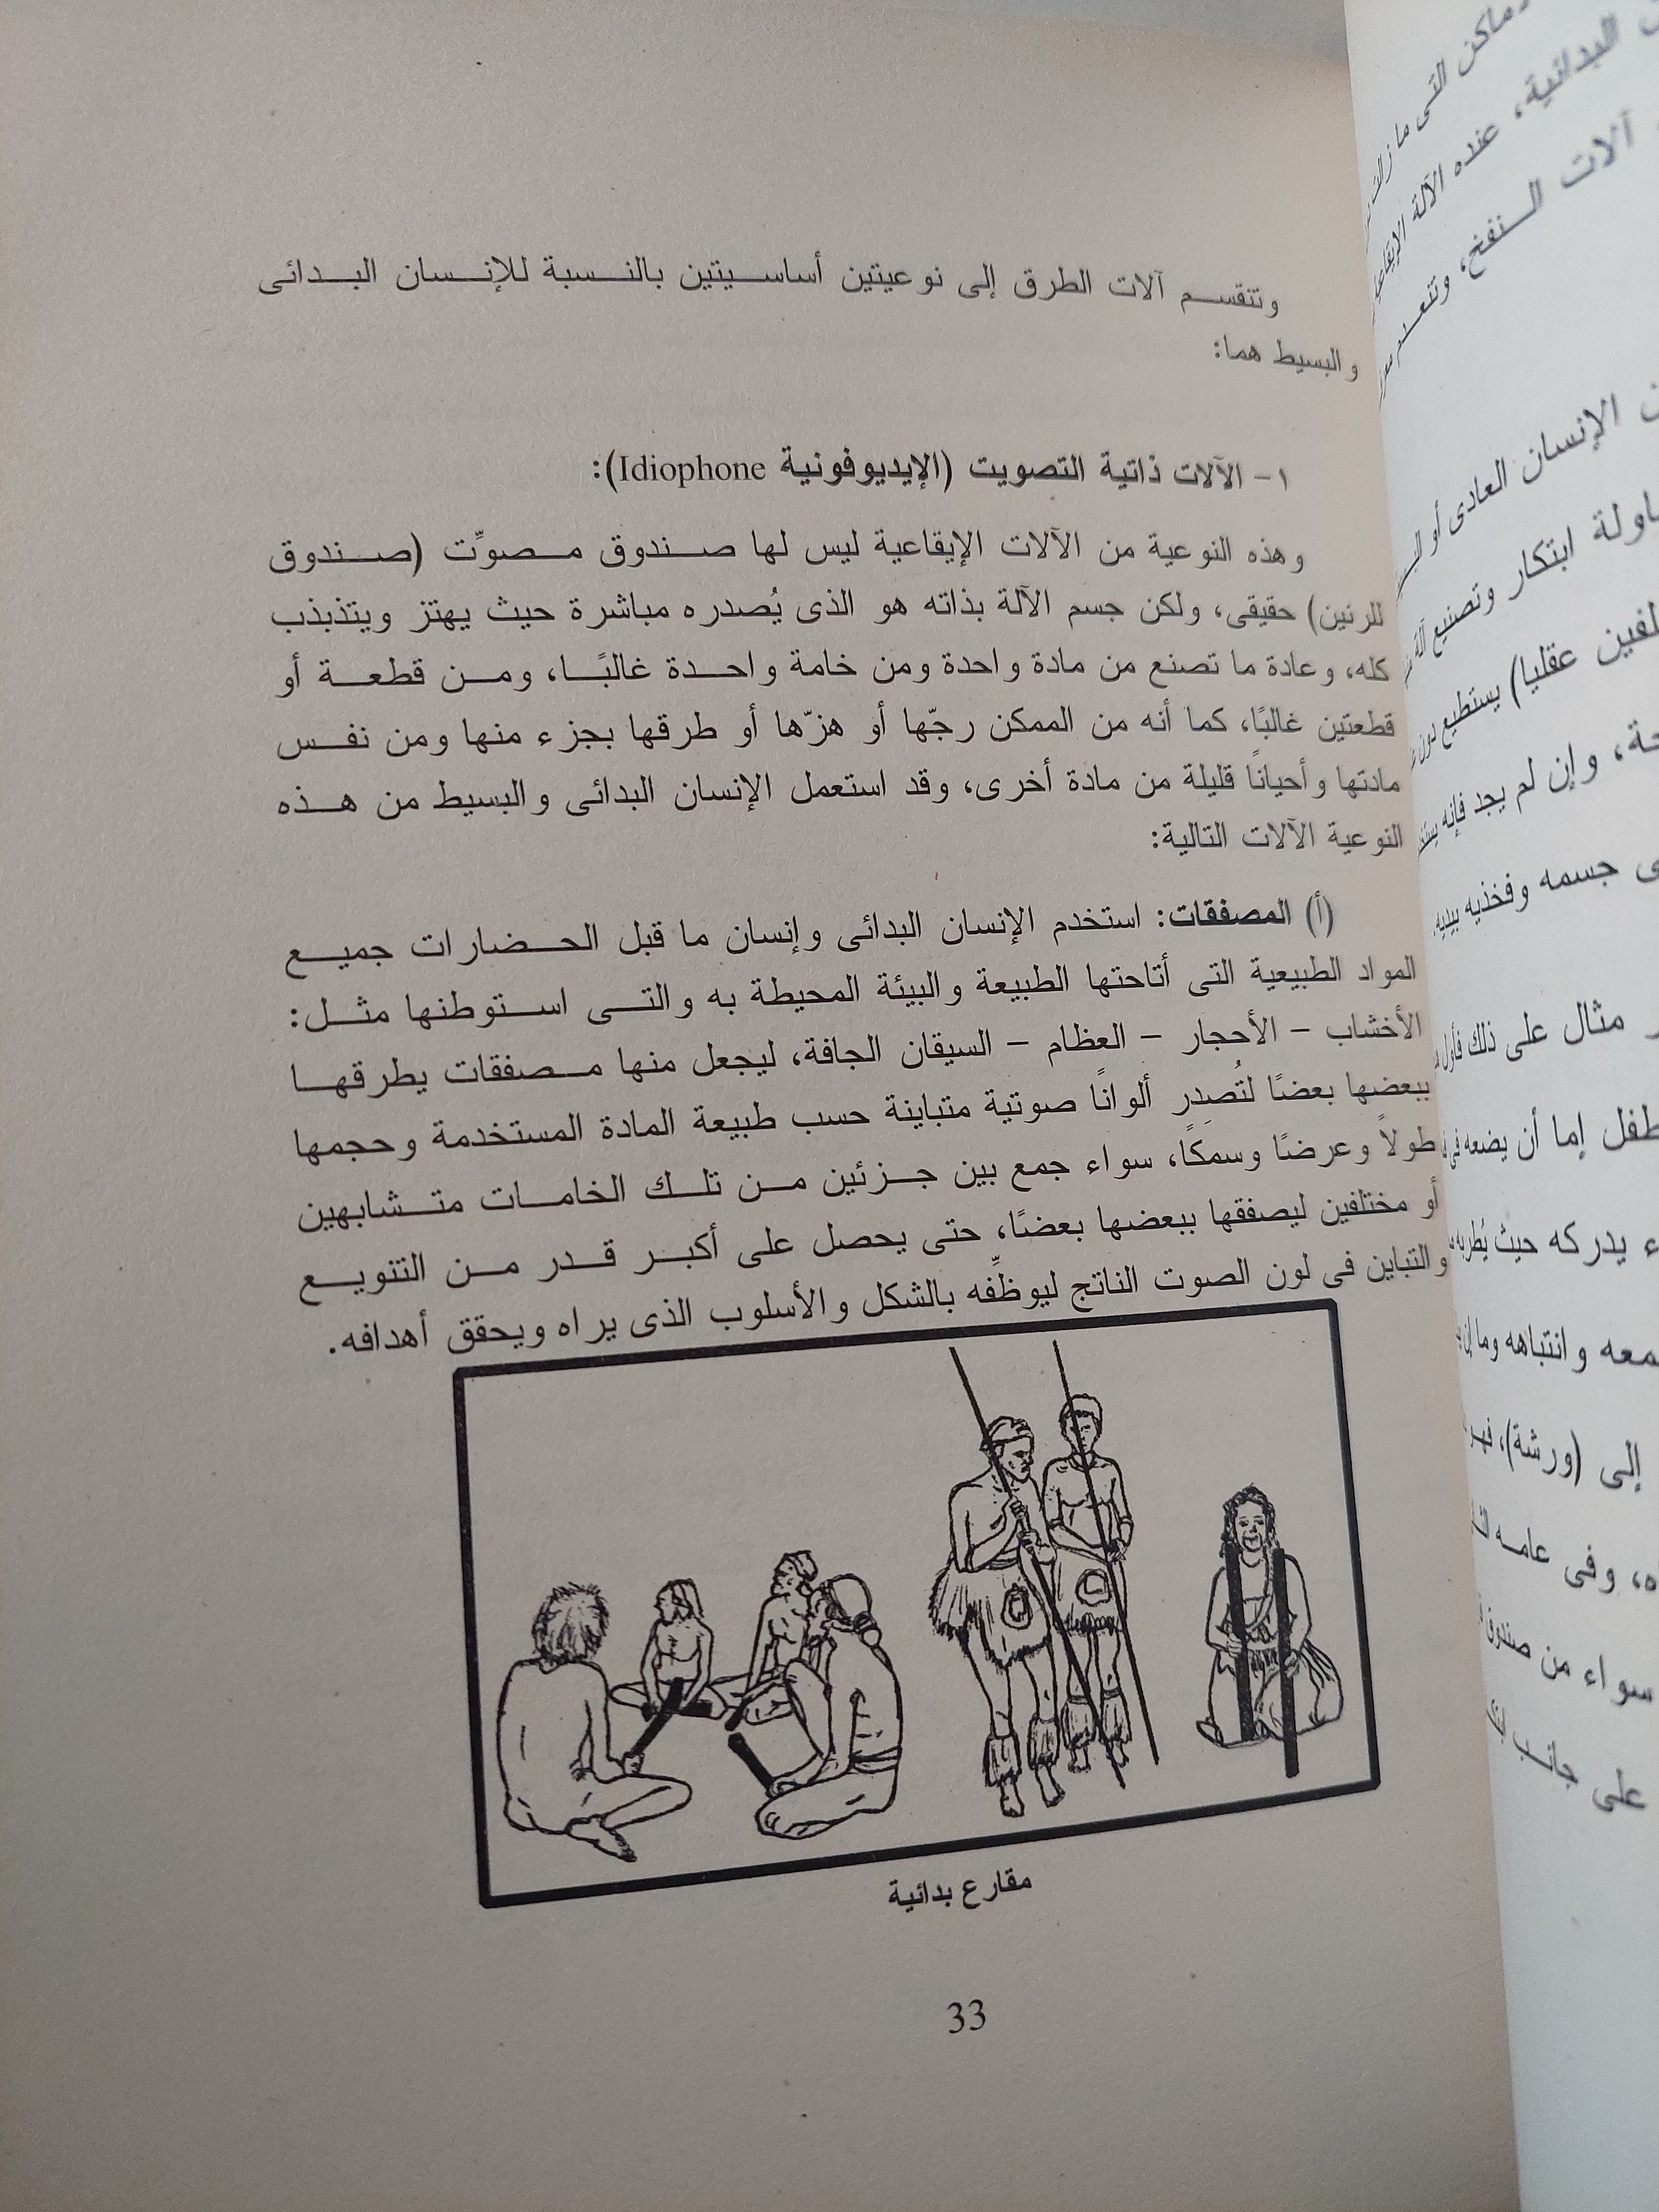 وتنقسم آلات الطرق إلى نوعيتين أساسيتين بالنسبة للإنسان البدائى
والبسيط هما:
١- الآلات ذاتية التصويت (الإيديوفونية Idiophone):
وهذه النوعية من الآلات الإيقاعية ليس لها صندوق مصوِّت (صندوق
للرنين) حقيقى، ولكن جسم الآلة بذاته هو الذى يُصدره مباشرة حيث يهتز ويتذبذب
كله، وعادة ما تصنع من مادة واحدة ومن خامة واحدة غالبًا، ومن قطعة أو
قطعتين غالبًا، كما أنه من الممكن رجّها أو هزّها أو طرقها بجزء منها ومن نفس
مادتها وأحيانًا قليلة من مادة أخرى، وقد استعمل الإنسان البدائى والبسيط من هذه
النوعية الآلات التالية:
(أ) المصفقات: استخدم الإنسان البدائى وإنسان ما قبل الحضارات جميع
المواد الطبيعية التى أتاحتها الطبيعة والبيئة المحيطة به والتى استوطنها مثل:
الأخشاب - الأحجار - العظام - السيقان الجافة، ليجعل منها مصفقات يطرقها
ببعضها بعضًا لتُصدِر ألوانًا صوتية متباينة حسب طبيعة المادة المستخدمة وحجمها
طولاً وعرضًا وسمكًا، سواء جمع بين جزئين من تلك الخامات متشابهين
أو مختلفين ليصفقها ببعضها بعضًا، حتى يحصل على أكبر قدر من التنويع
والتباين فى لون الصوت الناتج ليوظِّفه بالشكل والأسلوب الذى يراه ويحقق أهدافه.
مقارع بدائية
33
التى ما زالت
البدائية، عنده الآلة
آلات النفخ،
الإنسان العادى أو
ابتكار وتصنيع آلة
عقليا) يستطيع
وإن لم يجد فإنه
جسمه وفخذيه بيديه،
مثال على ذلك
إما أن يضعه
يدركه حيث
وانتباهه وما
إلى (ورشة)،
وفى عامه
سواء من
على جانب